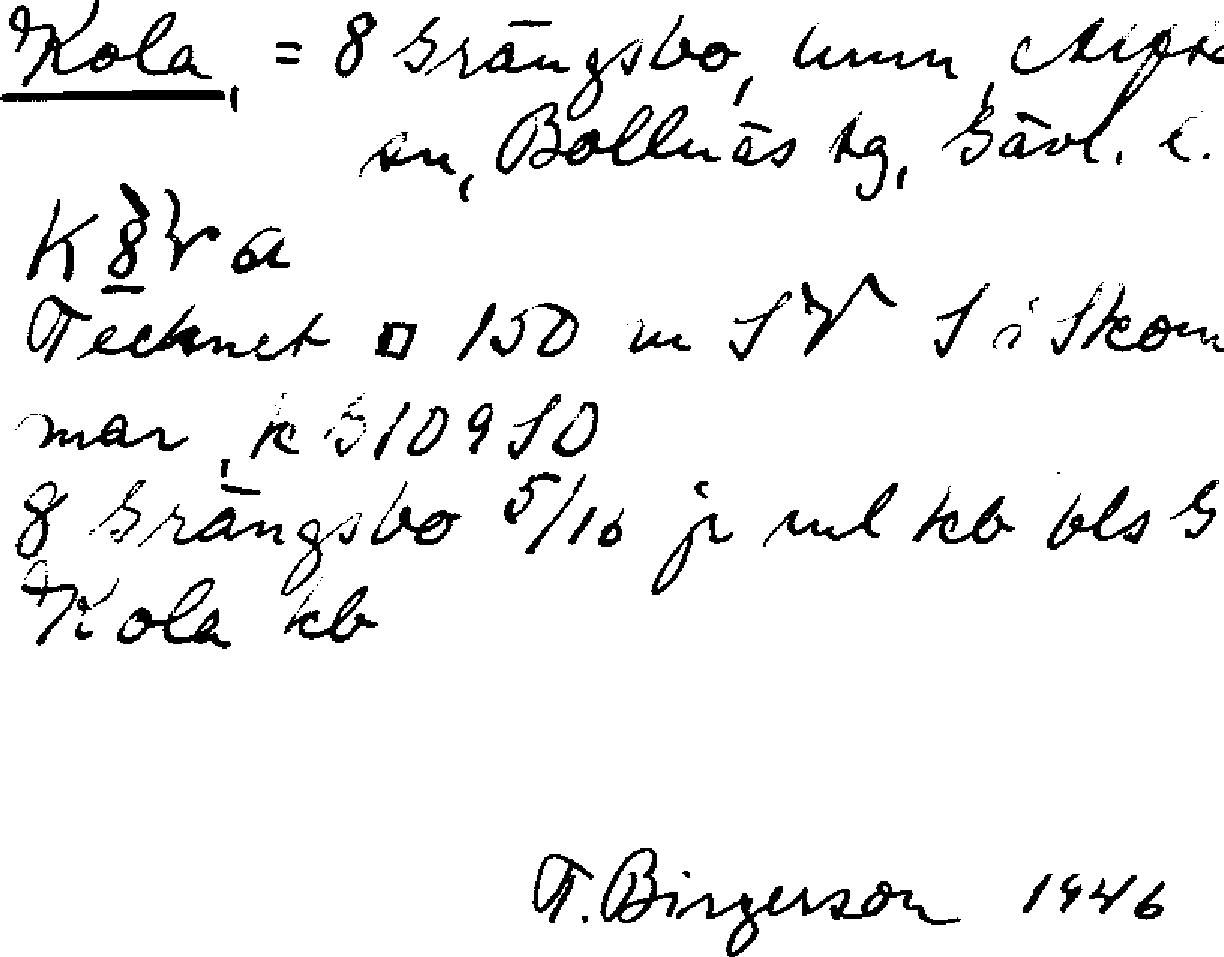 Kola, = 8 Grängsbo, hmn, Alfta
sn, Bollnäs tg, Gävl. l.
Tecknet □ 150 m SV S i Skom
mar, k G10950
8 Grängsbo 5/16 jr ml kb bls G
Kola kb
T. Birgerson 1946